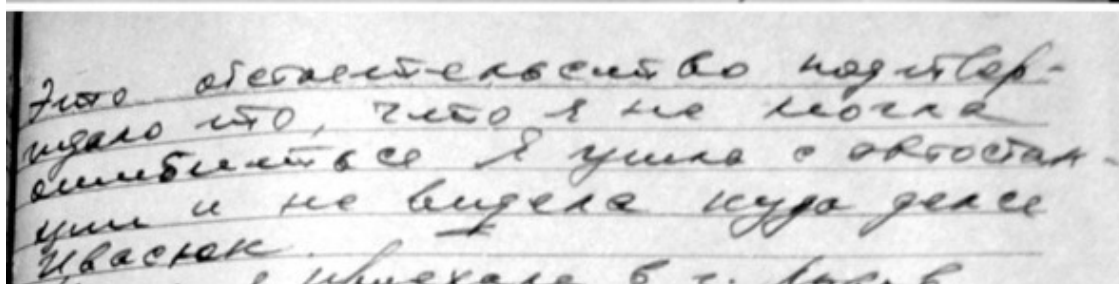 Это обстоятельство подтвер-
ждало то, что я не могла
ошибиться Я ушла с автостан-
ции и не видела куда делся
Ивасюк.
я приехала в г. Львов